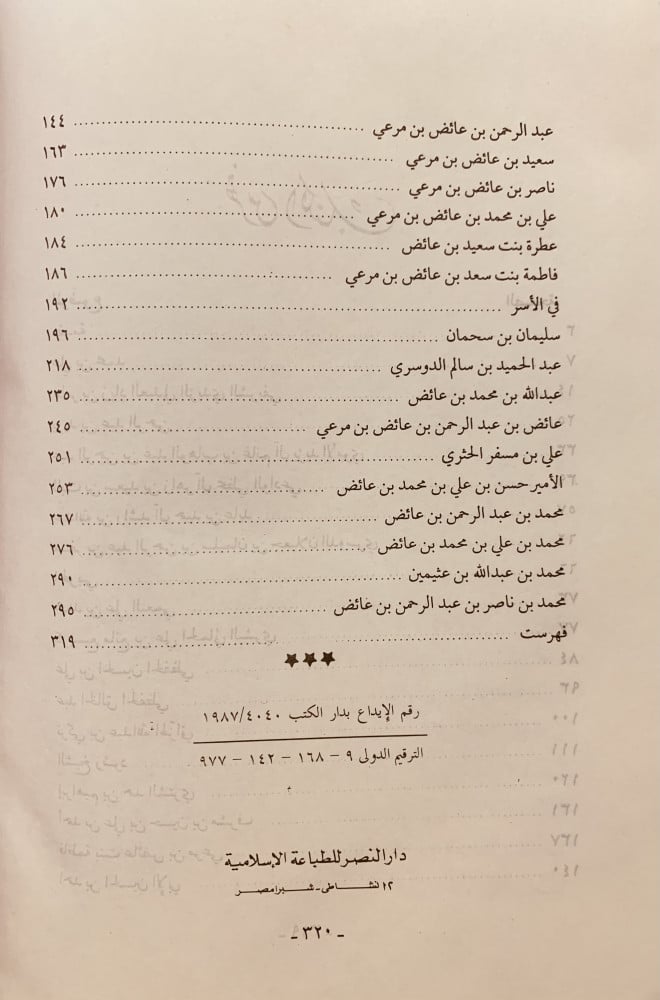 عبد الرحمن بن عائض بن مرعي ........ ١٤٤
سعيد بن عائض بن مرعي ........ ١٦٣
ناصر بن عائض بن مرعي ........ ١٧٦
علي بن محمد بن عائض بن مرعي ........ ١٨٠
عطرة بنت سعيد بن عائض ........ ١٨٤
فاطمة بنت سعد بن عائض بن مرعي ........ ١٨٦
في الأسر ........ ١٩٢
سليمان بن سحمان ........ ١٩٦
عبد الحميد بن سالم الدوسري ........ ٢١٨
عبدالله بن محمد بن عائض ........ ٢٣٥
عائض بن عبد الرحمن بن عائض بن مرعي ........ ٢٤٥
علي بن مسفر الحثري ........ ٢٥١
الأمير حسن بن علي بن محمد بن عائض ........ ٢٥٣
محمد بن عبد الرحمن بن عائض ........ ٢٦٧
محمد بن علي بن محمد بن عائض ........ ٢٧٦
محمد بن عبدالله بن عثيمين ........ ٢٩٠
محمد بن ناصر بن عبد الرحمن بن عائض ........ ٢٩٥
فهرست ........ ٣١٩
★★★
رقم الإيداع بدار الكتب ٤٠٤٠/١٩٨٧
الترقيم الدولى ٩ – ١٦٨ – ١٤٢ – ٩٧٧
دار النصر للطباعة الإسلامية
١٢ نشاطى - شبرا مصر
- ٣٢٠ -